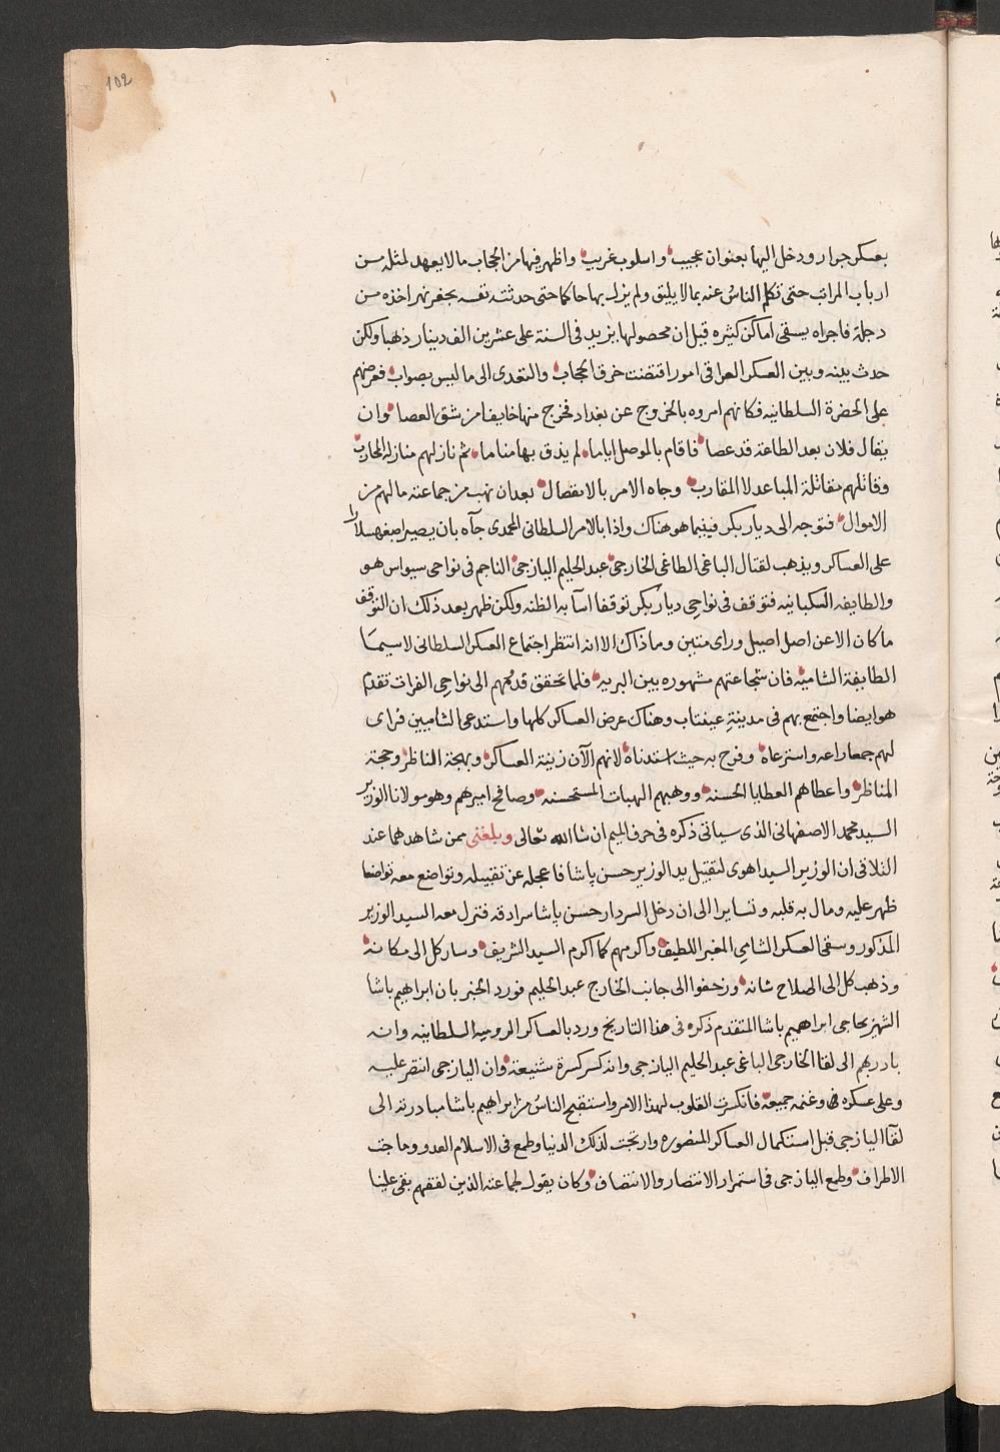 102
بعسكر جرار ودخل اليها بعنوان عجيب واسلوب غريب واظهر فيها من الحجاب ما لا يعهد لمثله من
ارباب المراتب حتى تكلم الناس عنه بما لا يليق ولم يزل بها حاكما حتى حدثته نفسه بحفر نهر اخذه من
دجلة فاجراه يسقى اماكن كثيره قيل ان محصولها يزيد فى السنة على عشرين الف دينار ذهبا ولكن
حدث بينه وبين العسكر العراقى امور اقتضت خرق الحجاب والتعدى الى ما ليس بصواب فعرضهم
على الحضرة السلطانيه فكانهم امروه بالخروج عن بغداد فخرج منها خايفا من شق العصا وان
يقال فلان بعد الطاعة قد عصا فاقام بالموصل اياما لم يذق بها مناما ثم نازلهم منازلة المحارب
وقاتلهم مقاتلة المباعد لا المقارب وجاه الامر بالانفصال بعد ان نهب من جماعته ما لهم من
الاموال فتوجه الى ديار بكر فبينما هو هناك واذا بالامر السلطانى المحمدى جآه بان يصير اصفهسلارا
على العساكر ويذهب لقتال الباغى الطاغى الخارجى عبد الحليم اليازجى الناجم فى نواحى سيواس هو
والطايفه السكبانيه فتوقف فى نواحى ديار بكر توقفا اسآ به الظنه ولكن ظهر بعد ذلك ان التوقف
ما كان الا عن اصل اصيل وراى متين وما ذاك الا انه انتظر اجتماع العسكر السلطانى لا سيما
الطايفة الشاميه فان شجاعتهم مشهوره بين البريه فلما تحقق قدومهم الى نواحى الفرات تقدم
هو ايضا واجتمع بهم فى مدينة عينتاب وهناك عرض العساكر كلها واستدعى الشاميين فراى
لهم جمعا راعه واسترعاه وفرح به حيث استدناه لانهم الآن زينة العساكر وبهجة الناظر وحجة
المناظر واعطاهم العطايا الحسنه ووهبهم الهبات المستحسنه وصافح اميرهم وهو مولانا الوزير
السيد محمد الاصفهانى الذى سياتى ذكره فى حرف الميم ان شا الله تعالى وبلغنى ممن شاهدهما عند
التلاقى ان الوزير السيد اهوى لتقبيل يد الوزير حسن پاشا فاعجله عن تقبيله وتواضع معه تواضعا
ظهر عليه ومال به قلبه وتسايرا الى ان دخل السردار حسن پاشا سرادقه فنزل معه السيد الوزير
المذكور وسقى العسكر الشامى المعبر اللطيف واكرمهم كما اكرم السيد الشريف وسار كل الى مكانه
وذهب كل الى اصلاح شانه وزحفوا الى جانب الخارج عبد الحليم فورد الخبر بان ابراهيم باشا
الشهير بحاجى ابراهيم باشا المتقدم ذكره فى هذا التاريخ ورد بالعساكر الروميه السلطانيه وانه
بادر بهم الى لقا الخارجى الباغى عبد الحليم اليازجى وانه كسر كسرة شنيعة وان اليازجى انتصر عليه
وعلى عسكره وغنمه جميعه فانكسرت القلوب لهذا الامر واستقبح الناس من ابراهيم باشا مبادرته الى
لقآ اليازجى قبل استكمال العساكر المنصوره وارتجت لذلك الدنيا وطمع فى الاسلام العدو وهاجت
الاطراف وطمع اليازجى فى استمرار الانتصار والانتصاف وكان يقول لجماعته الذين لفقهم بقى علينا